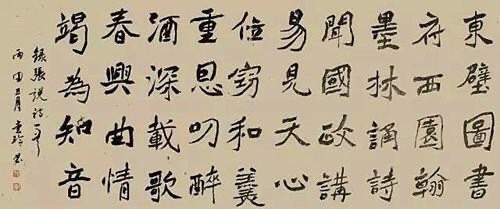 東壁圖書
府西園翰
墨林誦詩
聞國政講
易見天心
位竊和羹
重恩叨醉
酒深載歌
春興曲情
竭為知音
錄張說詩一首
丙申三月